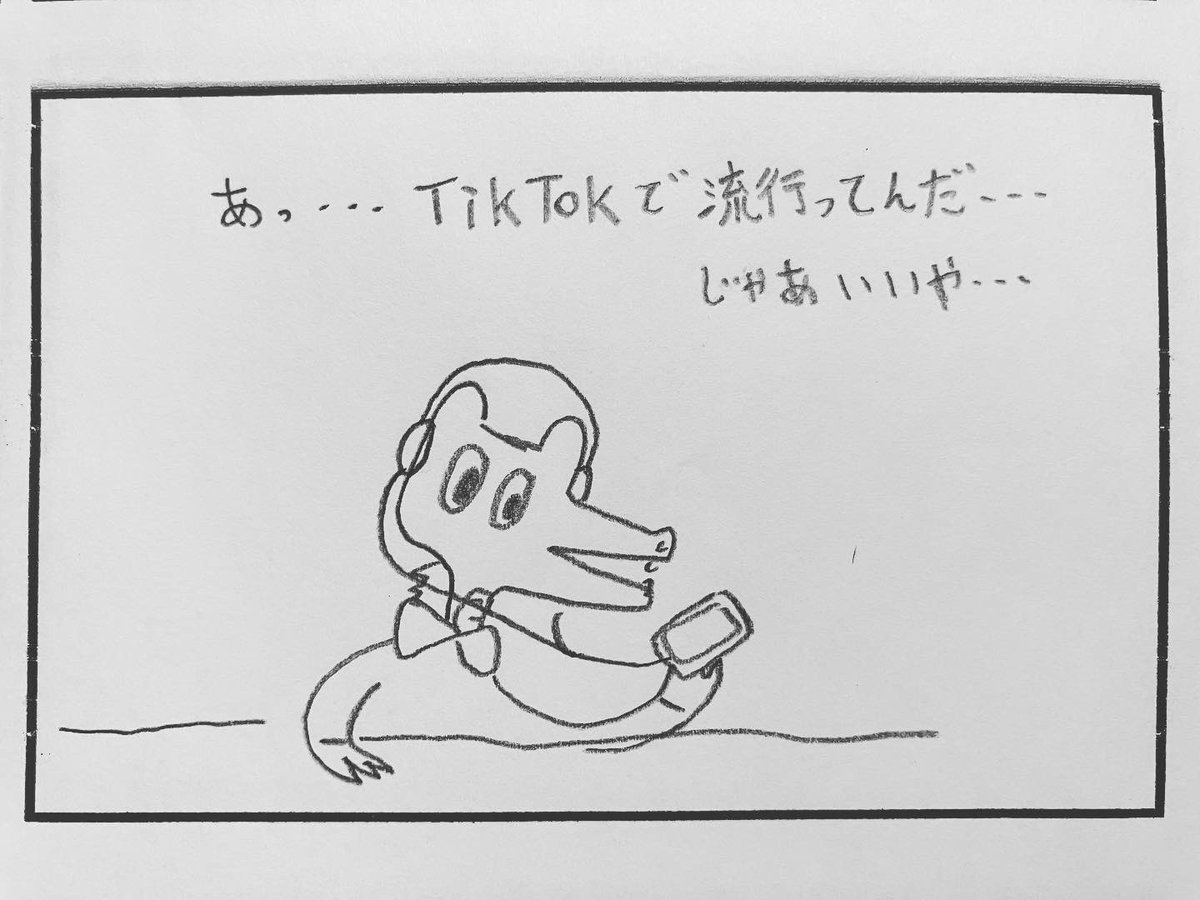 あっ... TikTokで流行ってんだ...
じゃあいいや...